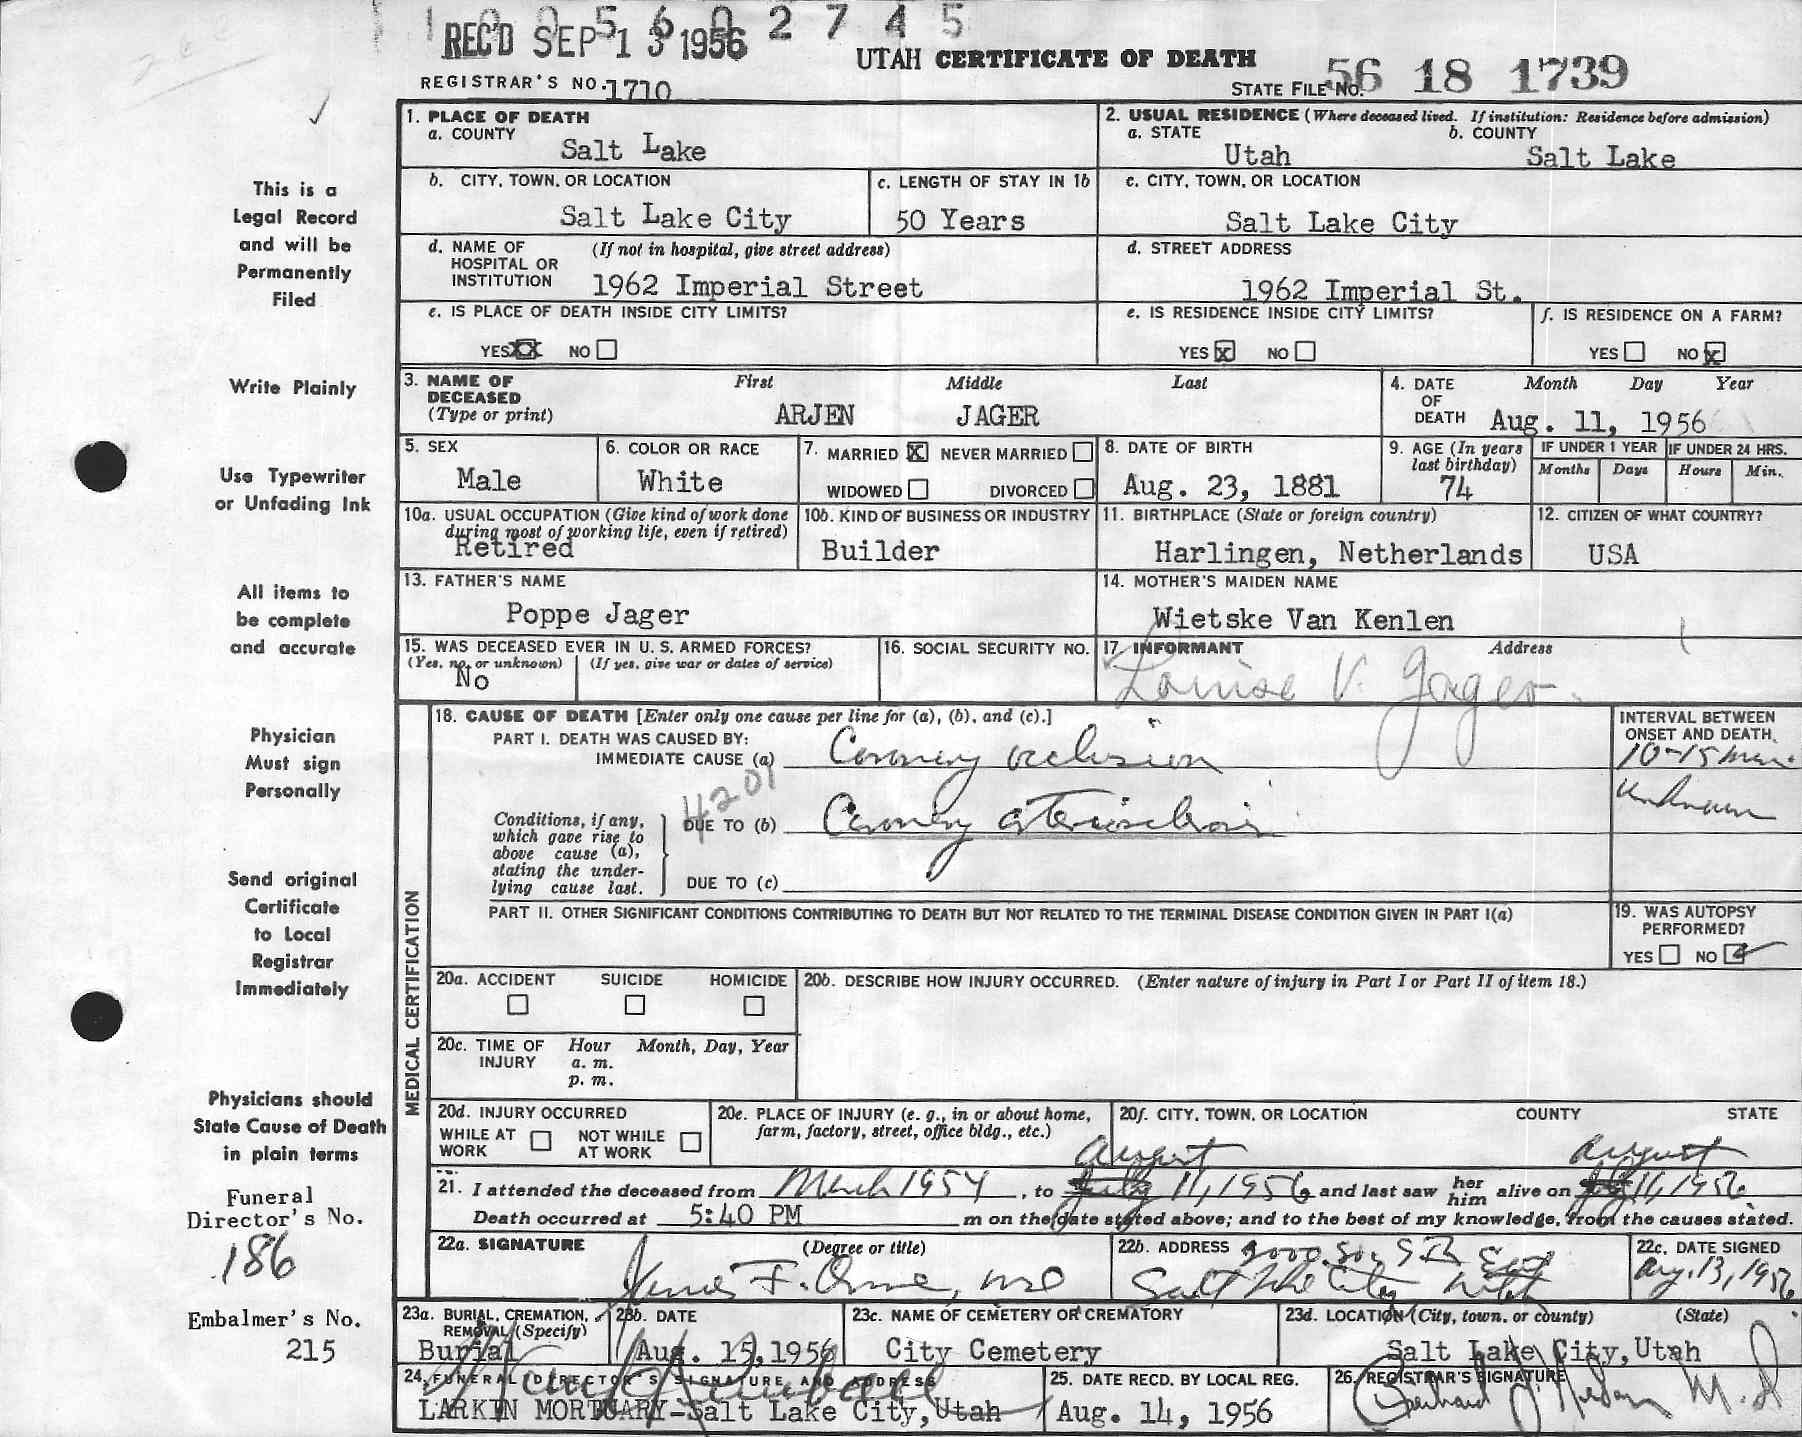 1 0 0 5 6 0 2 7 4 5
REC'D SEP 13 1956
UTAH CERTIFICATE OF DEATH
REGISTRAR'S NO. 1710
STATE FILE NO. 56 18 1739
This is a
Legal Record
and will be
Permanently
Filed
Write Plainly
Use Typewriter
or Unfading Ink
All items to
be complete
and accurate
Physician
Must sign
Personally
Send original
Certificate
to Local
Registrar
Immediately
Physicians should
State Cause of Death
in plain terms
Funeral
Director's No.
186
Embalmer's No.
215
1. PLACE OF DEATH
a. COUNTY
Salt Lake
2. USUAL RESIDENCE (Where deceased lived. If institution: Residence before admission)
a. STATE b. COUNTY
Utah Salt Lake
b. CITY, TOWN, OR LOCATION
Salt Lake City
c. LENGTH OF STAY IN 1b
50 Years
c. CITY, TOWN, OR LOCATION
Salt Lake City
d. NAME OF (If not in hospital, give street address)
HOSPITAL OR
INSTITUTION 1962 Imperial Street
d. STREET ADDRESS
1962 Imperial St.
e. IS PLACE OF DEATH INSIDE CITY LIMITS?
YES XX NO
e. IS RESIDENCE INSIDE CITY LIMITS?
YES X NO
f. IS RESIDENCE ON A FARM?
YES NO X
3. NAME OF First Middle Last
DECEASED
(Type or print) ARJEN JAGER
4. DATE Month Day Year
OF
DEATH Aug. 11, 1956
5. SEX
Male
6. COLOR OR RACE
White
7. MARRIED X NEVER MARRIED
WIDOWED DIVORCED
8. DATE OF BIRTH
Aug. 23, 1881
9. AGE (In years
last birthday)
74
IF UNDER 1 YEAR IF UNDER 24 HRS.
Months Days Hours Min.
10a. USUAL OCCUPATION (Give kind of work done
during most of working life, even if retired)
Retired
10b. KIND OF BUSINESS OR INDUSTRY
Builder
11. BIRTHPLACE (State or foreign country)
Harlingen, Netherlands
12. CITIZEN OF WHAT COUNTRY?
USA
13. FATHER'S NAME
Poppe Jager
14. MOTHER'S MAIDEN NAME
Wietske Van Kenlen
15. WAS DECEASED EVER IN U. S. ARMED FORCES?
(Yes, no, or unknown) (If yes, give war or dates of service)
No
16. SOCIAL SECURITY NO.
17. INFORMANT Address
Louise V. Jager
MEDICAL CERTIFICATION
18. CAUSE OF DEATH [Enter only one cause per line for (a), (b), and (c).]
PART I. DEATH WAS CAUSED BY:
IMMEDIATE CAUSE (a) Coronary occlusion
INTERVAL BETWEEN
ONSET AND DEATH
10-15 min.
4201
Conditions, if any,
which gave rise to
above cause (a),
stating the under-
lying cause last.
DUE TO (b) Coronary arteriosclerosis
unknown
DUE TO (c)
PART II. OTHER SIGNIFICANT CONDITIONS CONTRIBUTING TO DEATH BUT NOT RELATED TO THE TERMINAL DISEASE CONDITION GIVEN IN PART I(a)
19. WAS AUTOPSY
PERFORMED?
YES NO
20a. ACCIDENT SUICIDE HOMICIDE
20b. DESCRIBE HOW INJURY OCCURRED. (Enter nature of injury in Part I or Part II of item 18.)
20c. TIME OF Hour Month, Day, Year
INJURY a. m.
p. m.
20d. INJURY OCCURRED
WHILE AT NOT WHILE
WORK AT WORK
20e. PLACE OF INJURY (e. g., in or about home,
farm, factory, street, office bldg., etc.)
20f. CITY, TOWN, OR LOCATION COUNTY STATE
August August
21. I attended the deceased from March 1954, to July 11, 1956 and last saw her him alive on July 11, 1956
Death occurred at 5:40 PM m on the date stated above; and to the best of my knowledge, from the causes stated.
22a. SIGNATURE (Degree or title)
James F. Orme, MD
22b. ADDRESS
Salt Lake City Utah
22c. DATE SIGNED
Aug. 13, 1956
23a. BURIAL, CREMATION,
REMOVAL (Specify)
Burial
23b. DATE
Aug. 15, 1956
23c. NAME OF CEMETERY OR CREMATORY
City Cemetery
23d. LOCATION (City, town, or county) (State)
Salt Lake City, Utah
24. FUNERAL DIRECTOR'S SIGNATURE AND ADDRESS
LARKIN MORTUARY-Salt Lake City, Utah
25. DATE RECD. BY LOCAL REG.
Aug. 14, 1956
26. REGISTRAR'S SIGNATURE
M.D